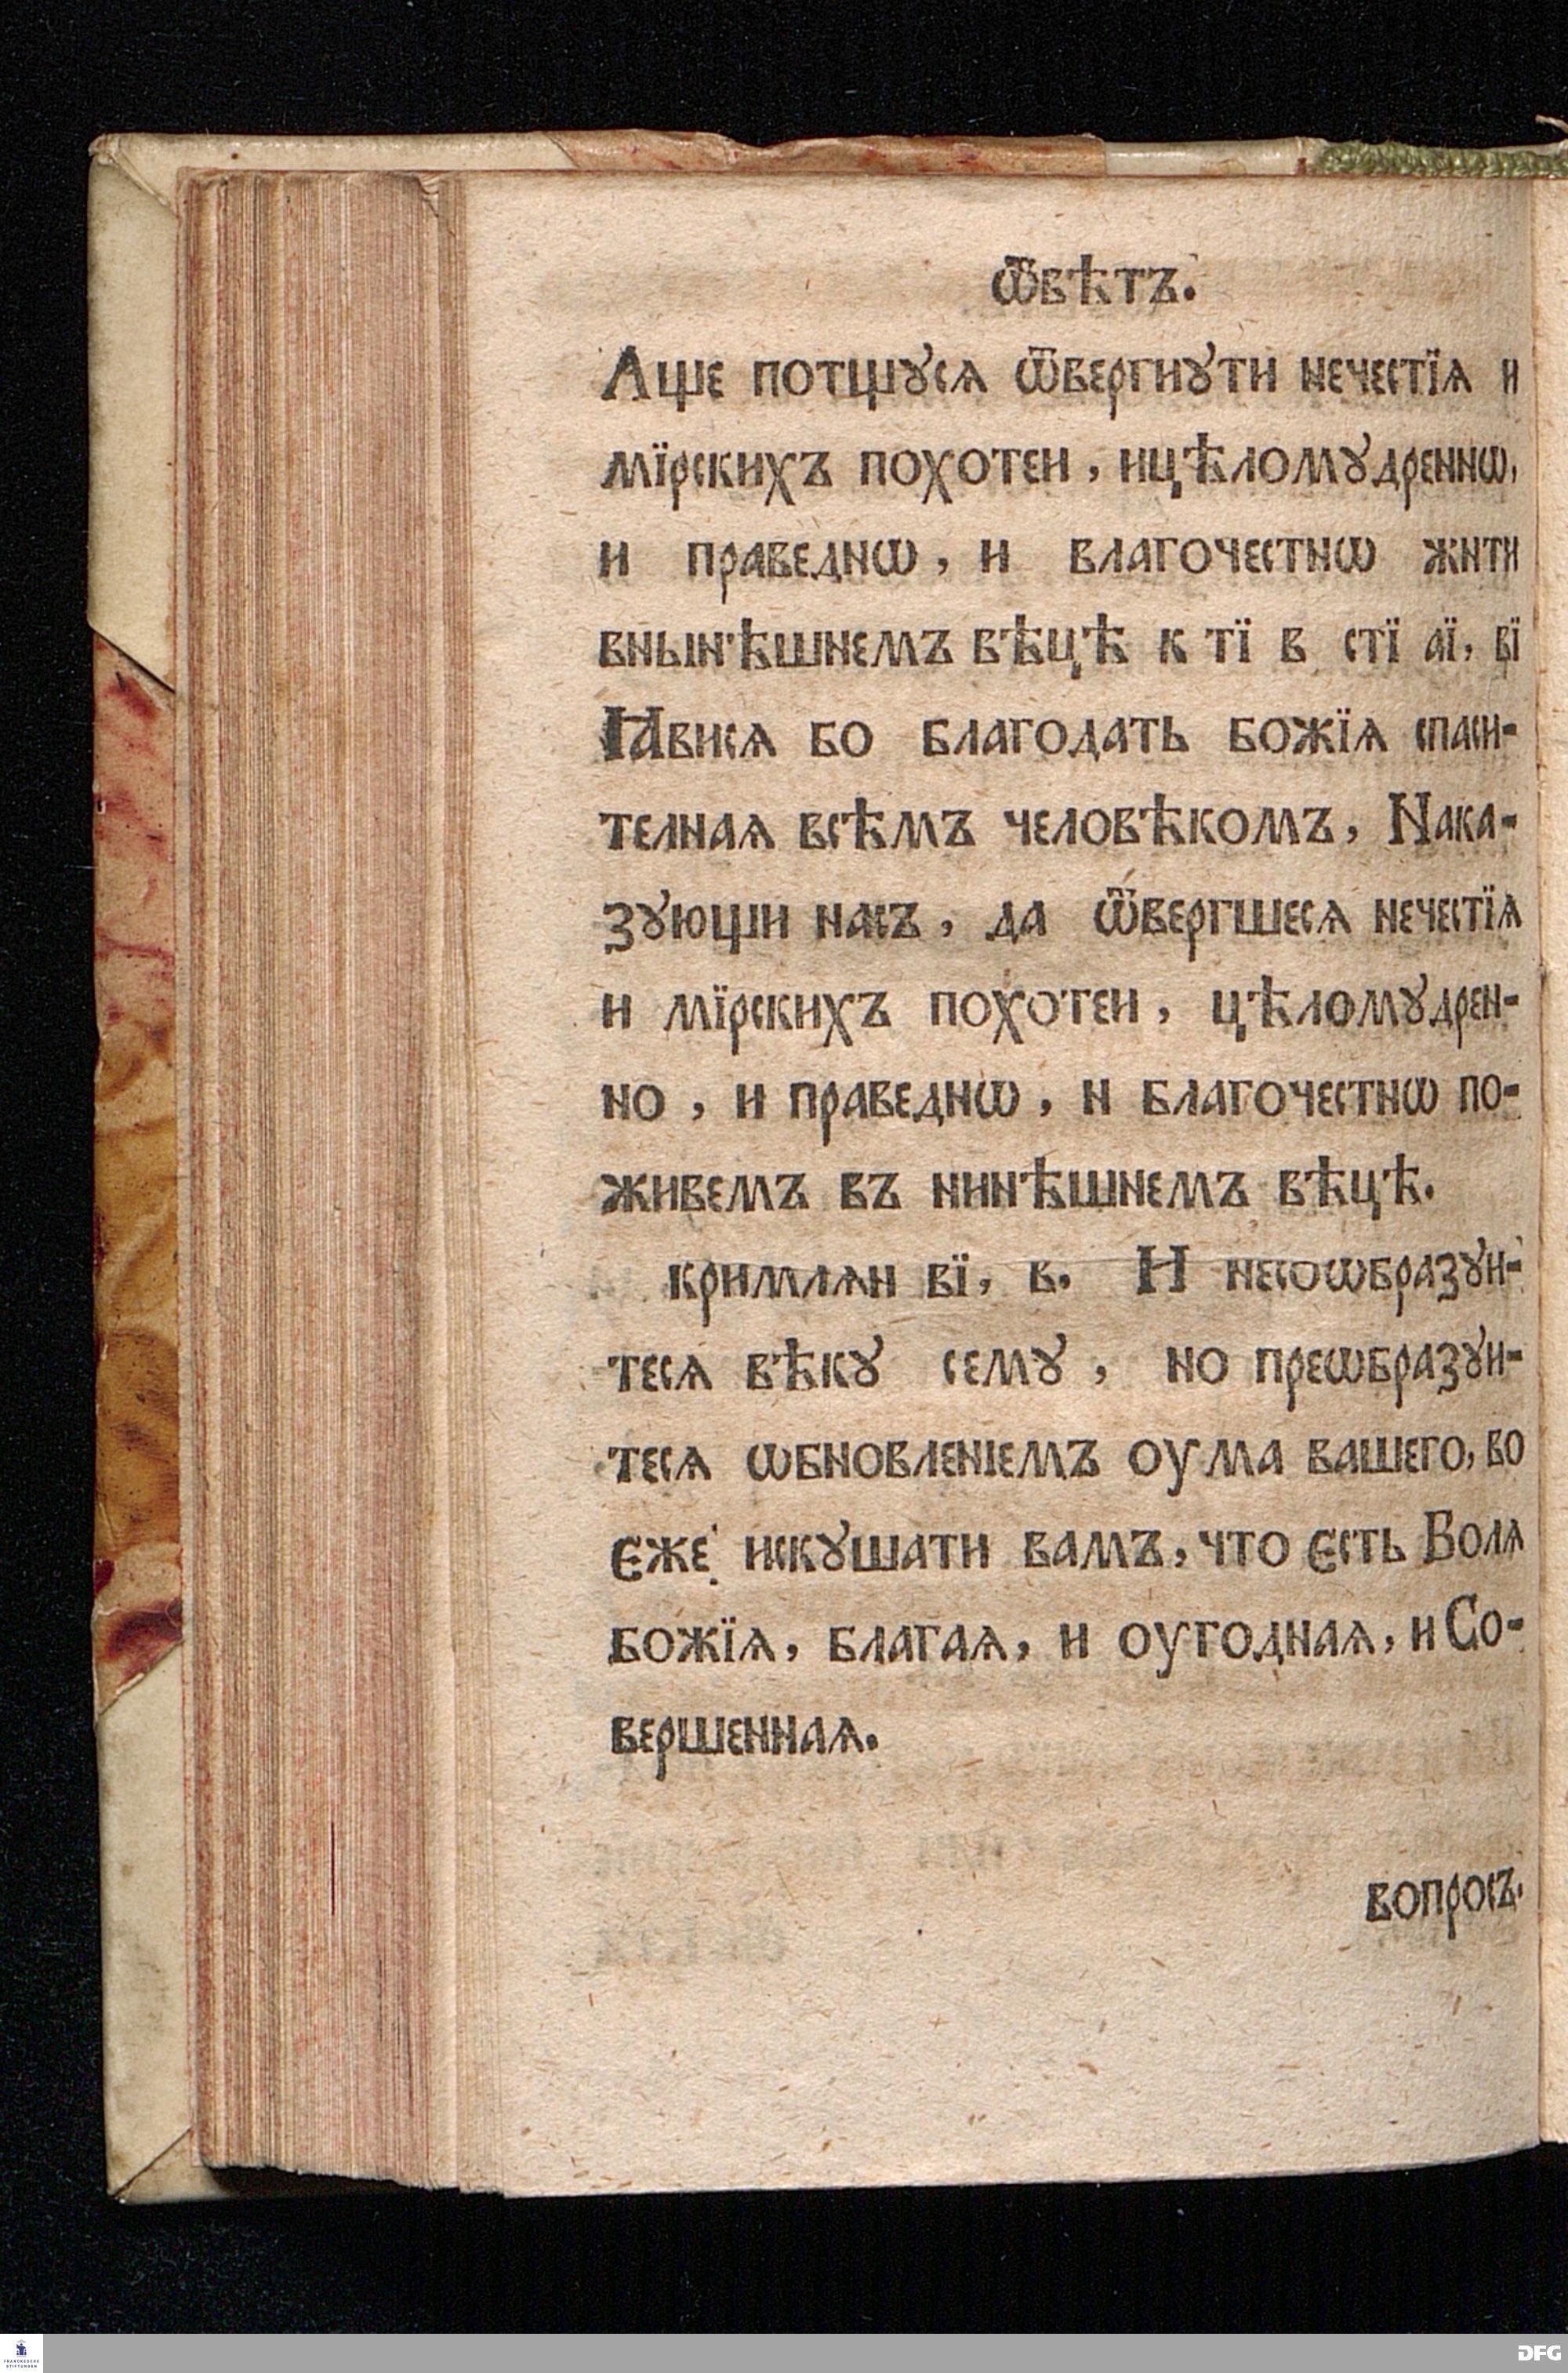 ѿвѣтъ.
Аще потщуся ѿвергнꙋти нечестїѧ и
мїрскихъ похотеи, ицѣломꙋдреннѡ,
и праведнѡ, и влагочестнѡ жити
внынѣшнемъ вѣцѣ к тї в стї аї, вї
Ꙗвисѧ бо благодать божїѧ спаси-
телнаѧ всѣмъ человѣкомъ, Нака-
зꙋющи насъ, да ѿвергшесѧ нечестїѧ
и мїрскихъ похотеи, цѣломꙋдрен-
но, и праведнѡ, и благочестнѡ по-
живемъ въ нинѣшнемъ вѣцѣ.
кримлѧн вї, в. И несоѡбразꙋи-
тесѧ вѣкꙋ семꙋ, но преѡбразꙋи-
тесѧ ѡбновленіемъ оума вашего, во
єже искꙋшати вамъ, что єсть Волѧ
божїѧ, благаѧ, и оугоднаѧ, и Со-
вершеннаѧ.
вопросъ.
FRANCKESCHE
STIFTUNGEN
DFG